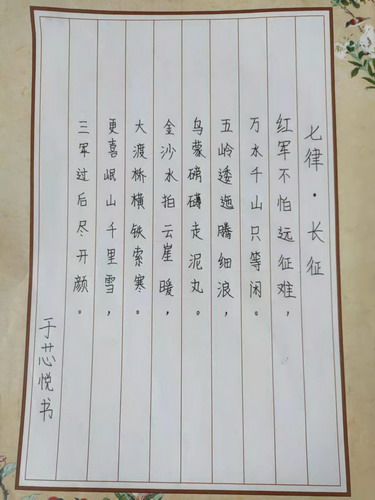 七律·长征
红军不怕远征难，
万水千山只等闲。
五岭逶迤腾细浪，
乌蒙磅礴走泥丸。
金沙水拍云崖暖，
大渡桥横铁索寒。
更喜岷山千里雪，
三军过后尽开颜。
于芯悦书